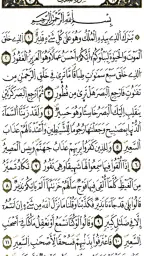 بِسْمِ اللَّهِ الرَّحْمَٰنِ الرَّحِيمِ
تَبَارَكَ الَّذِي بِيَدِهِ الْمُلْكُ وَهُوَ عَلَىٰ كُلِّ شَيْءٍ قَدِيرٌ ١ الَّذِي خَلَقَ
الْمَوْتَ وَالْحَيَاةَ لِيَبْلُوَكُمْ أَيُّكُمْ أَحْسَنُ عَمَلًا وَهُوَ الْعَزِيزُ الْغَفُورُ ٢
الَّذِي خَلَقَ سَبْعَ سَمَاوَاتٍ طِبَاقًا مَا تَرَىٰ فِي خَلْقِ الرَّحْمَٰنِ مِنْ
تَفَاوُتٍ فَارْجِعِ الْبَصَرَ هَلْ تَرَىٰ مِنْ فُطُورٍ ٣ ثُمَّ ارْجِعِ الْبَصَرَ كَرَّتَيْنِ
يَنْقَلِبْ إِلَيْكَ الْبَصَرُ خَاسِئًا وَهُوَ حَسِيرٌ ٤ وَلَقَدْ زَيَّنَّا السَّمَاءَ
الدُّنْيَا بِمَصَابِيحَ وَجَعَلْنَاهَا رُجُومًا لِلشَّيَاطِينِ وَأَعْتَدْنَا لَهُمْ عَذَابَ
السَّعِيرِ ٥ وَلِلَّذِينَ كَفَرُوا بِرَبِّهِمْ عَذَابُ جَهَنَّمَ وَبِئْسَ الْمَصِيرُ ٦
إِذَا أُلْقُوا فِيهَا سَمِعُوا لَهَا شَهِيقًا وَهِيَ تَفُورُ ٧ تَكَادُ تَمَيَّزُ
مِنَ الْغَيْظِ كُلَّمَا أُلْقِيَ فِيهَا فَوْجٌ سَأَلَهُمْ خَزَنَتُهَا أَلَمْ يَأْتِكُمْ نَذِيرٌ ٨
قَالُوا بَلَىٰ قَدْ جَاءَنَا نَذِيرٌ فَكَذَّبْنَا وَقُلْنَا مَا نَزَّلَ اللَّهُ مِنْ شَيْءٍ إِنْ أَنْتُمْ
إِلَّا فِي ضَلَالٍ كَبِيرٍ ٩ وَقَالُوا لَوْ كُنَّا نَسْمَعُ أَوْ نَعْقِلُ مَا كُنَّا فِي أَصْحَابِ
السَّعِيرِ ١٠ فَاعْتَرَفُوا بِذَنْبِهِمْ فَسُحْقًا لِأَصْحَابِ السَّعِيرِ ١١